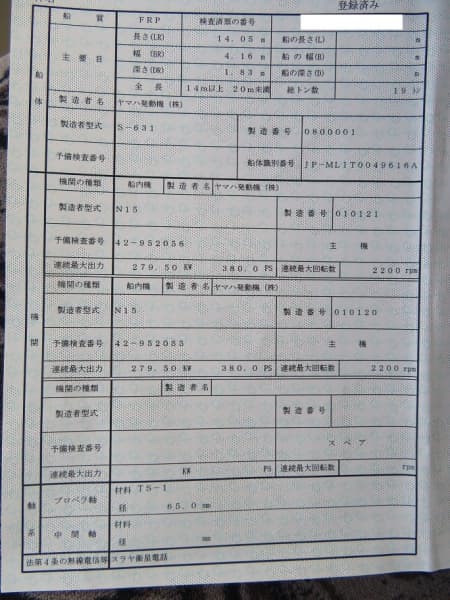 登録済み
船質 FRP 検査済票の番号
主要目 長さ(LR) 14.05 m 船の長さ(L) m
幅(BR) 4.16 m 船の幅(B) m
深さ(DR) 1.83 m 船の深さ(D) m
全長 14m以上 20m未満 総トン数 19トン
船体
製造者名 ヤマハ発動機(株)
製造者型式 S-631 製造番号 0800001
予備検査番号 船体識別番号 JP-ML1T0049616A
機関の種類 船内機 製造者名 ヤマハ発動機(株)
製造者型式 N15 製造番号 010121
予備検査番号 42-952056 主機
連続最大出力 279.50 KW 380.0 PS 連続最大回転数 2200 rpm
機関の種類 船内機 製造者名 ヤマハ発動機(株)
製造者型式 N15 製造番号 010120
機関
予備検査番号 42-952055 主機
連続最大出力 279.50 KW 380.0 PS 連続最大回転数 2200 rpm
機関の種類 製造者名
製造者型式 製造番号
予備検査番号 スペア
連続最大出力 KW PS 連続最大回転数 rpm
軸系 プロペラ軸 材料 TS-1
径 65.0 mm
中間軸 材料
径 mm
法第4条の無線電信等 スラヤ衛星電話